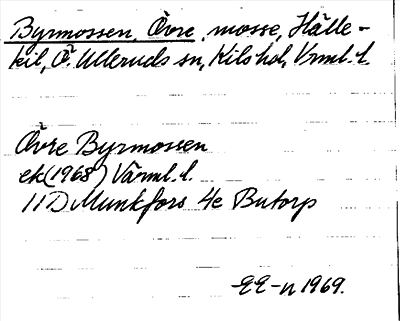 Byrmossen, Övre, mosse, Hälle-
kil, Ö. Ulleruds sn, Kils hd, Vrml. l.
Övre Byrmossen
ek (1968) Värml. l.
11D Munkfors 4e Butorp
EE-n 1969.